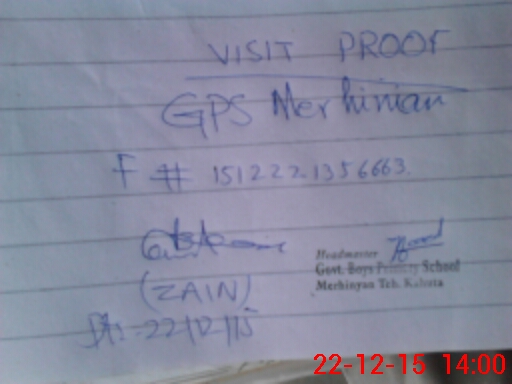 VISIT PROOF
GPS Merhinian
F # 151222-1356663.
(ZAIN)
Dt:-22/12/15
Headmaster
Govt. Boys Primary School
Merhinyan Teh. Kahuta
22-12-15 14:00